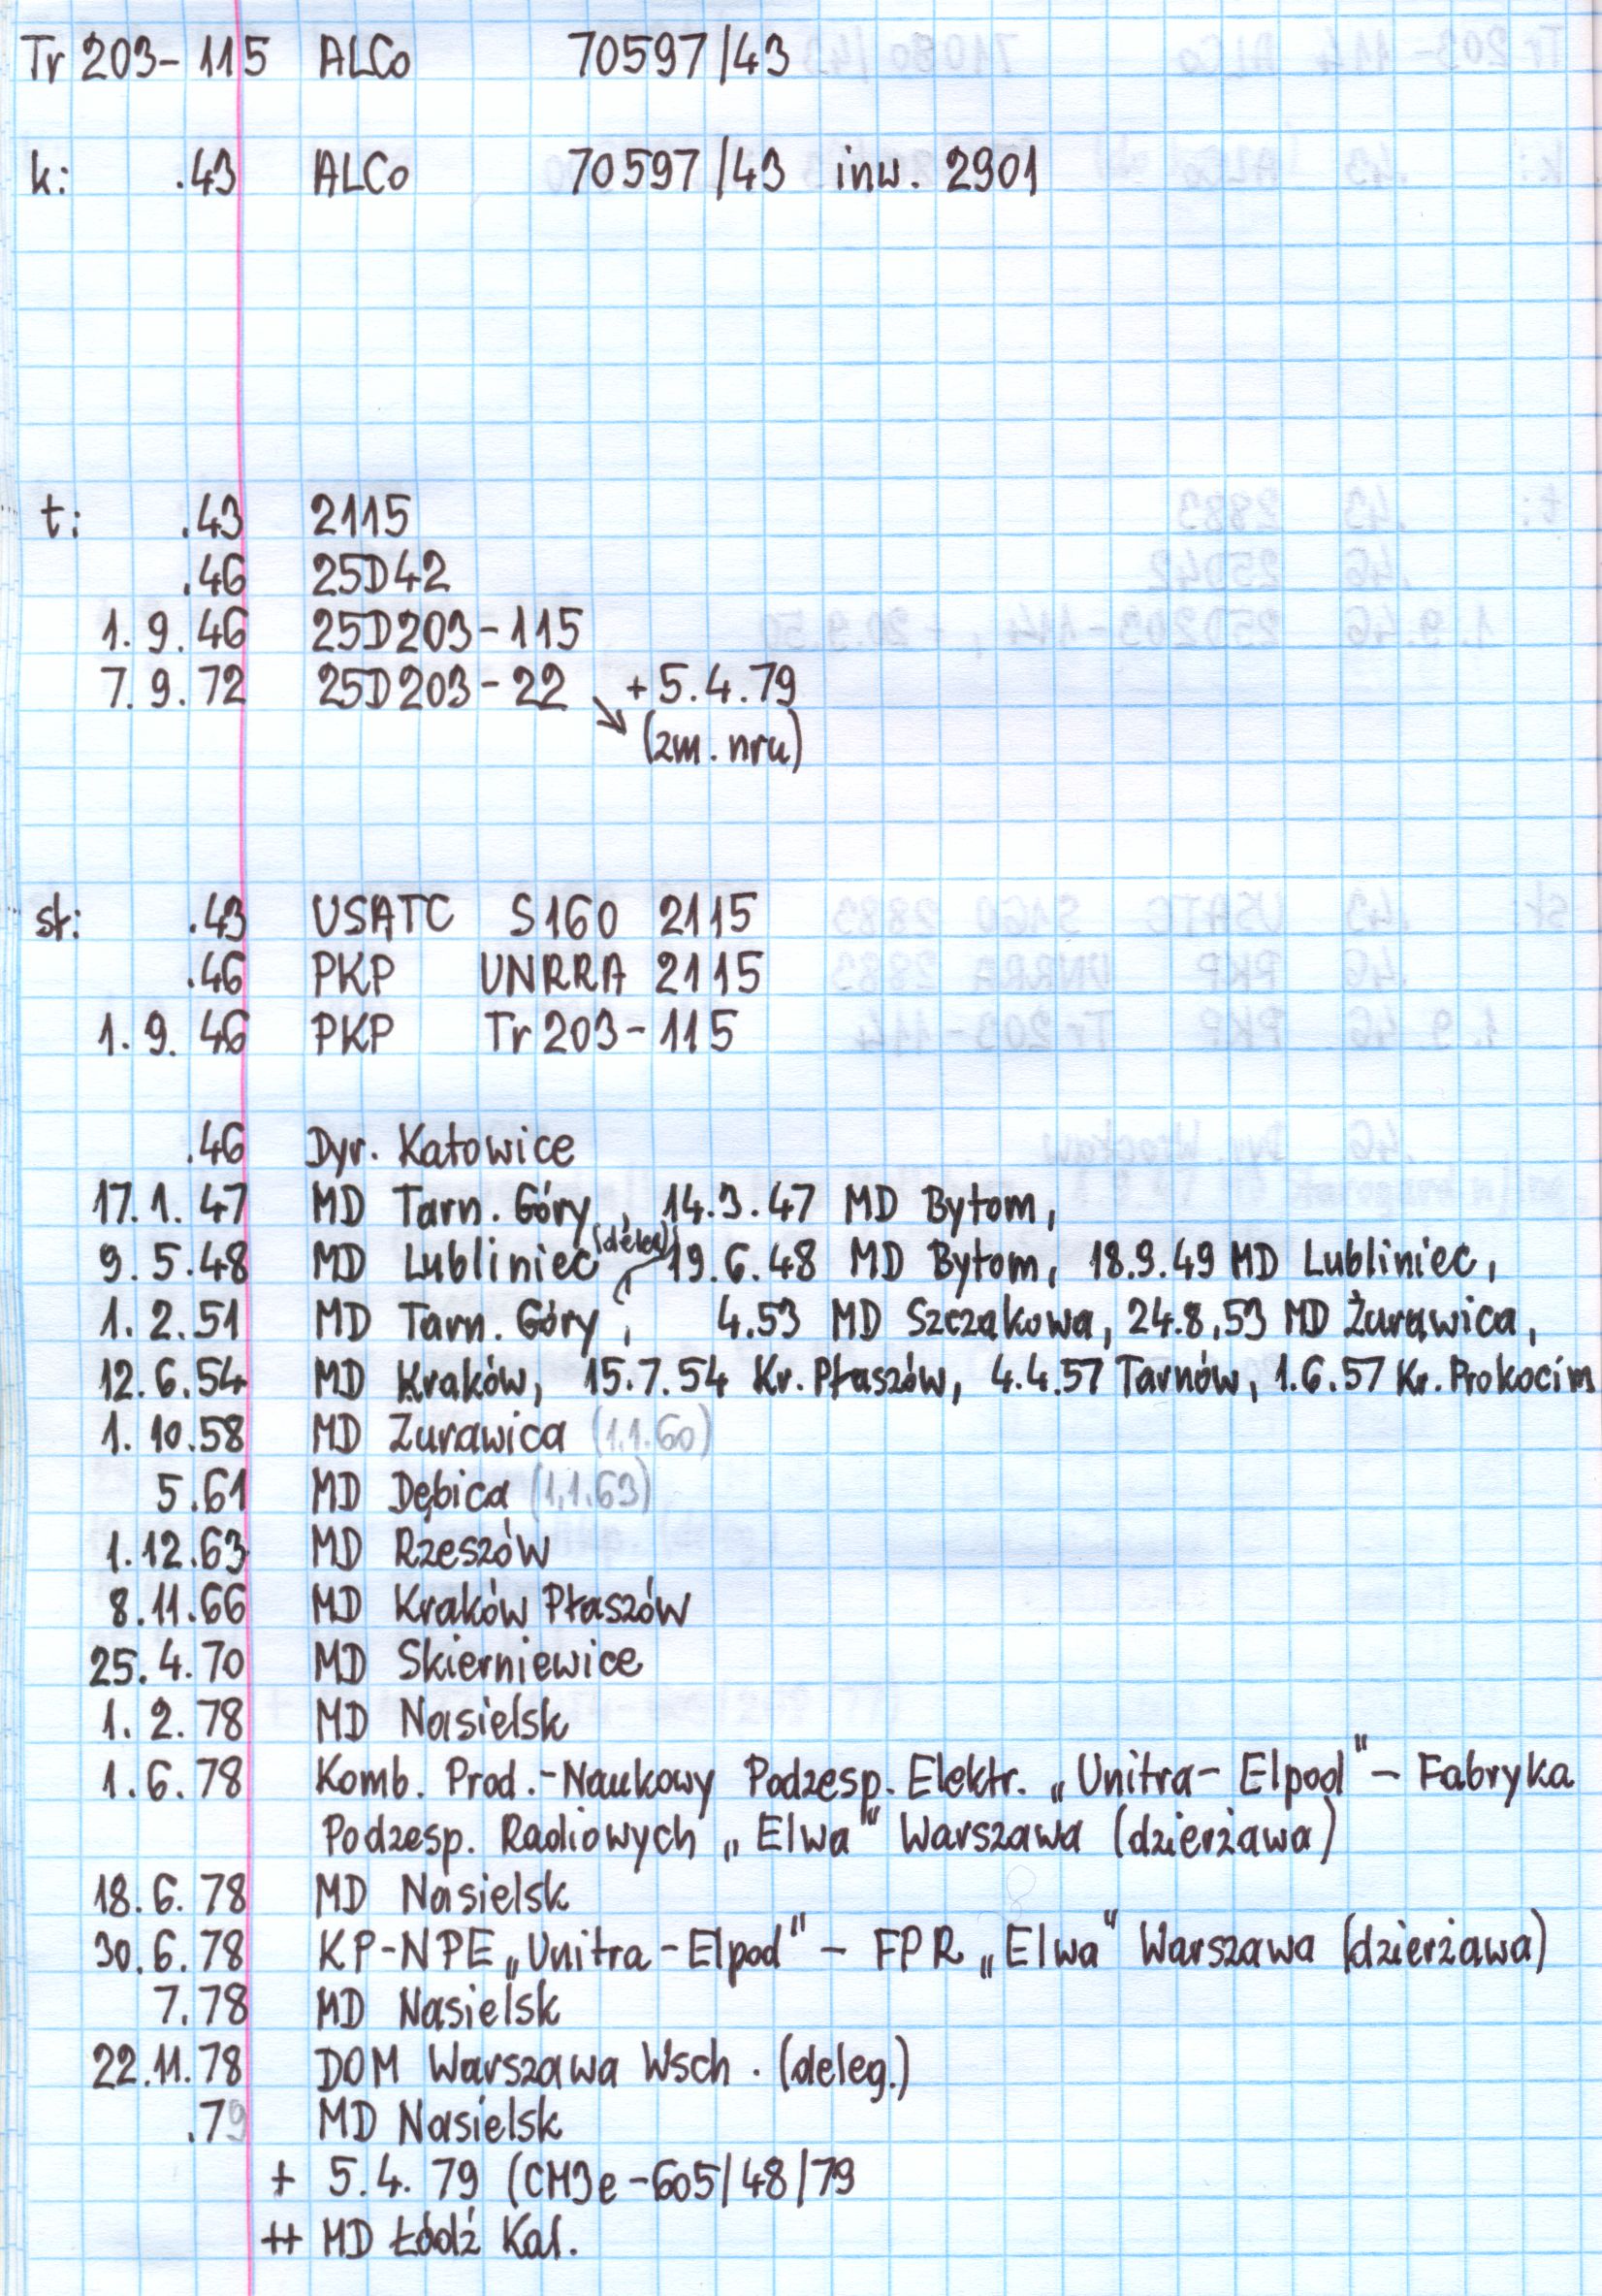 Tr 203-115 ALCo 70597/43
k: .43 ALCo 70597/43 inw. 2901
t: .43 2115
.46 25D42
1.9.46 25D203-115
7.9.72 25D203-22 ↘ +5.4.79
(zm. nru)
st: .43 USATC S160 2115
.46 PKP UNRRA 2115
1.9.46 PKP Tr 203-115
.46 Dyr. Katowice
17.1.47 MD Tarn. Góry, 14.3.47 MD Bytom,
9.5.48 MD Lubliniec (deleg.), 19.6.48 MD Bytom, 18.9.49 MD Lubliniec,
1.2.51 MD Tarn. Góry, 4.53 MD Szczakowa, 24.8.53 MD Żurawica,
12.6.54 MD Kraków, 15.7.54 Kr. Płaszów, 4.4.57 Tarnów, 1.6.57 Kr. Prokocim
1.10.58 MD Żurawica (1.1.60)
5.61 MD Dębica (1.1.63)
1.12.63 MD Rzeszów
8.11.66 MD Kraków Płaszów
25.4.70 MD Skierniewice
1.2.78 MD Nasielsk
1.6.78 Komb. Prod.-Naukowy Podzesp. Elektr. „Unitra-Elpod" - Fabryka
Podzesp. Radiowych „Elwa" Warszawa (dzierżawa)
18.6.78 MD Nasielsk
30.6.78 KP-NPE „Unitra-Elpod" - FPR „Elwa" Warszawa (dzierżawa)
7.78 MD Nasielsk
22.11.78 DOM Warszawa Wsch. (deleg.)
.79 MD Nasielsk
+ 5.4.79 (CM3e-605/48/79
++ MD Łódź Kal.